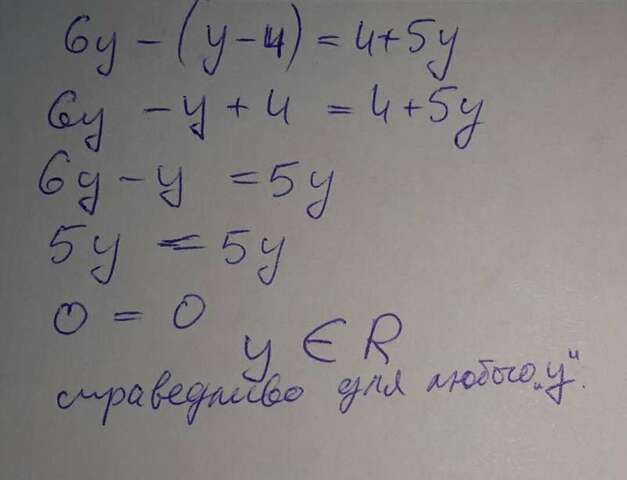 6y - (y-4) = 4+5y
6y - y + 4 = 4+5y
6y - y = 5y
5y = 5y
0 = 0
y ∈ R
справедливо для любого „y".